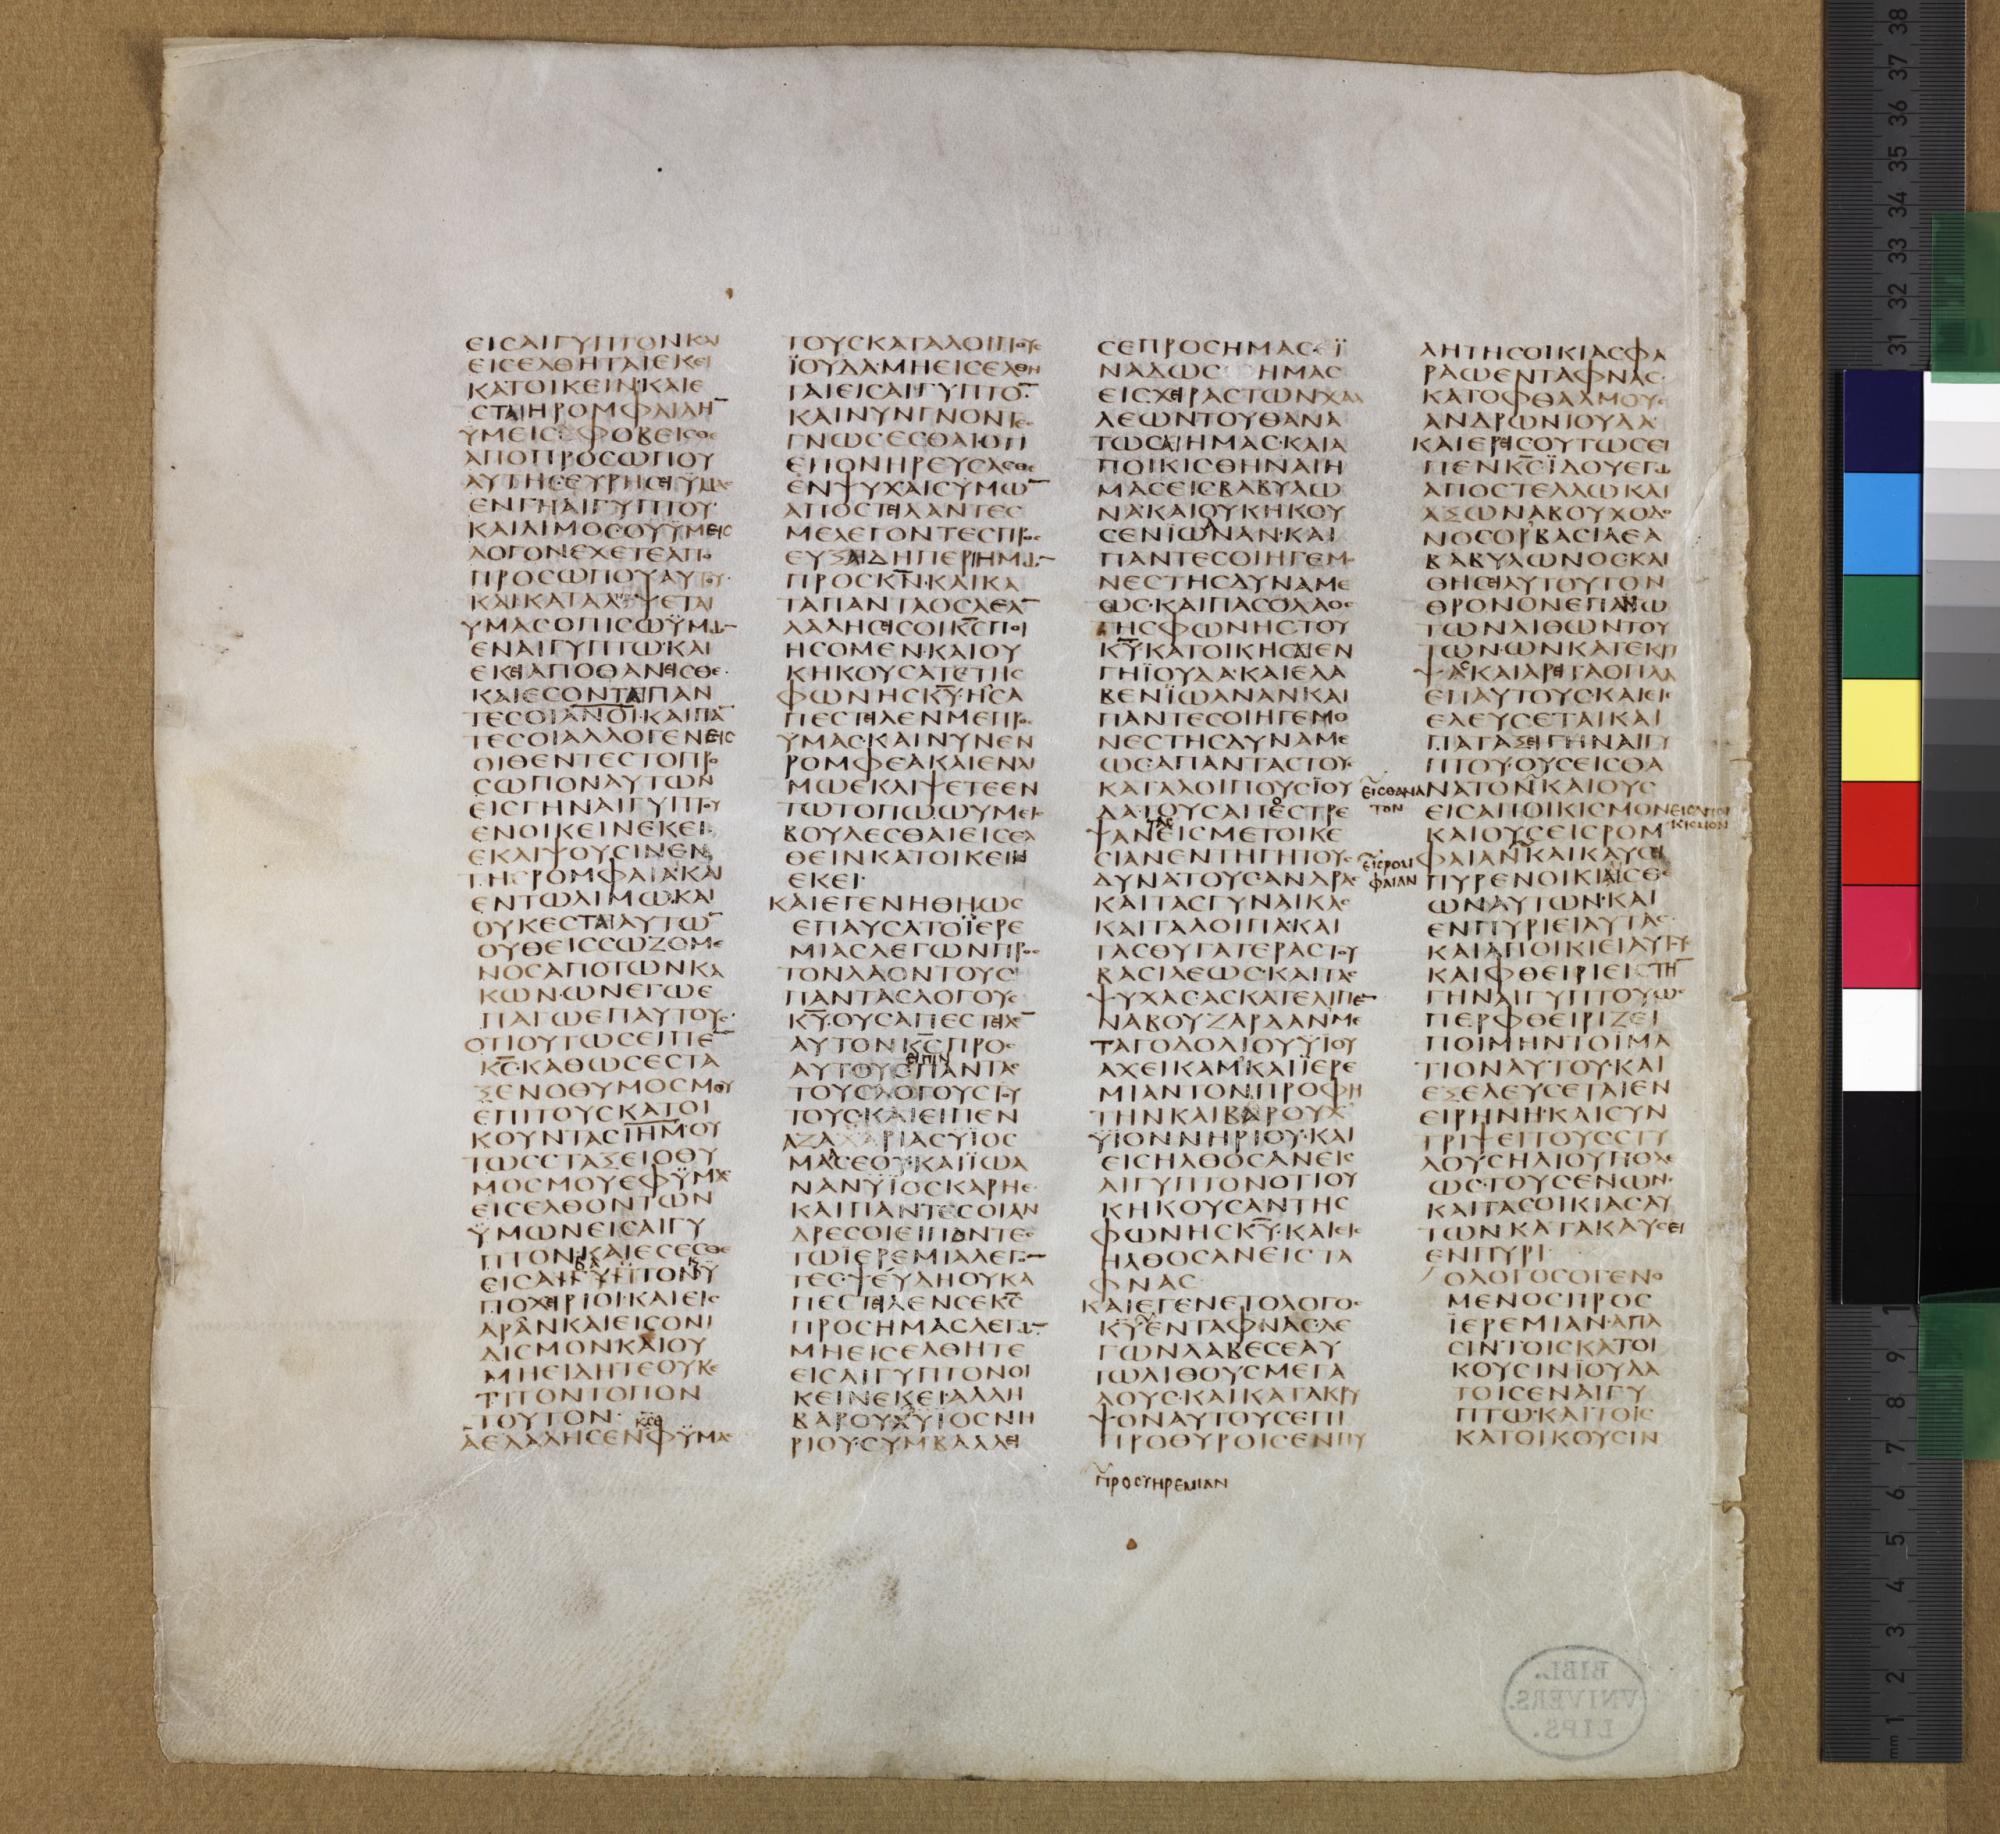 ΕΙCΑΙΓΥΠΤΟΝΚΑΙ
ΕΙCΕΛΘΗΤΑΙΕΚΕΙ
ΚΑΤΟΙΚΕΙΝ·ΚΑΙΕ
CΤΑΙΗΡΟΜΦΑΙΑΗ̅
ΥΜΕΙC
ΑΠΟΠΡΟCΩΠΟΥ
ΑΥΤΗC·ΕΥΡΗCΕΙΫΜΑC
ΕΝΓΗΑΙΓΥΠΤΟΥ·
ΚΑΙΛΙΜΟC·ΟΥΫΜΕΙC
ΛΟΓΟΝΕΧΕΤΕΑΠΟ
ΠΡΟCΩΠΟΥΑΥΤΟΥ·
ΚΑΙΚΑΤΑΛΗΜΨΕΤΑΙ
ΥΜΑCΟΠΙCΩΫΜΩ̅
ΕΝΑΙΓΥΠΤΩ·ΚΑΙ
ΕΚΕΙΑΠΟΘΑΝΕΙCΘΕ·
ΚΑΙΕCΟΝΤΑΙΠΑΝ
ΤΕCΟΙΑΝΟΙ·ΚΑΙΠΑ̅
ΤΕCΟΙΑΛΛΟΓΕΝΕΙC
ΟΙΘΕΝΤΕCΤΟΠΡΟ
CΩΠΟΝΑΥΤΩΝ
ΕΙCΓΗΝΑΙΓΥΠΤΟΥ
ΕΝΟΙΚΕΙΝΕΚΕΙ·
ΕΚΛΙΨΟΥCΙΝΕΝ
ΤΗCΡΟΜΦΑΙΑ·ΚΑΙ
ΕΝΤΩΛΙΜΩ·ΚΑΙ
ΟΥΚΕCΤΑΙΑΥΤΩ̅
ΟΥΘΕΙCCΩΖΟΜΕ
ΝΟCΑΠΟΤΩΝΚΑ
ΚΩΝ·ΩΝΕΓΩΕ
ΠΑΓΩΕΠΑΥΤΟΥC·
ΟΤΙΟΥΤΩCΕΙΠΕ̅
Κ̅C̅·ΚΑΘΩCΕCΤΑ
ΞΕΝΟΘΥΜΟCΜΟΥ
ΕΠΙΤΟΥCΚΑΤΟΙ
ΚΟΥΝΤΑCΙΗΜ·ΟΥ
ΤΩCCΤΑΞΕΙΟΘΥ
ΜΟCΜΟΥΕΦΫΜΑC
ΕΙCΕΛΘΟΝΤΩΝ
ΫΜΩΝΕΙCΑΙΓΥ
ΠΤΟΝ·ΚΑΙΕCΕCΘΕ
ΕΙCΑΙΓΥΠΤΟΝΫ
ΠΟΧΕΙΡΙΟΙ·ΚΑΙΕΙC
ΑΡΑΝΚΑΙΕΙCΟΝΙ
ΔΙCΜΟΝΚΑΙΟΥ
ΜΗΕΙΔΗΤΕΟΥΚΕ
ΤΙΤΟΝΤΟΠΟΝ
ΤΟΥΤΟΝ·
ΑΕΛΑΛΗCΕΝΕΦΫΜΑC
ΤΟΥCΚΑΤΑΛΟΙΠΟΥC
ΪΟΥΔΑ·ΜΗΕΙCΕΛΘΗ
ΤΑΙΕΙCΑΙΓΥΠΤΟ̅·
ΚΑΙΝΥΝΓΝΟΝΤΕC
ΓΝΩCΕCΘΑΙΟΤΙ
ΕΠΟΝΗΡΕΥCΑCΘΕ
ΕΝΨΥΧΑΙCΥΜΩ̅
ΑΠΟCΤΕΙΛΑΝΤΕC
ΜΕΛΕΓΟΝΤΕCΠΡΟC
ΕΥΞΑΙΔΗΠΕΡΙΗΜΩ̅
ΠΡΟCΚ̅Ν̅·ΚΑΙΚΑ
ΤΑΠΑΝΤΑΟCΑΕΑ̅
ΛΑΛΗCΕΙCΟΙΚ̅C̅ΠΟΙ
ΗCΟΜΕΝ·ΚΑΙΟΥ
ΚΗΚΟΥCΑΤΕΤΗC
ΦΩΝΗCΚ̅Υ̅·ΗCΑ
ΠΕCΤΕΙΛΕΝΜΕΠΡΟC
ΥΜΑC·ΚΑΙΝΥΝΕΝ
ΡΟΜΦΕΑΚΑΙΕΝΛΙ
ΜΩΕΚΛΙΨΕΤΕΕΝ
ΤΩΤΟΠΩ·ΩΥΜΕΙC
ΒΟΥΛΕCΘΑΙΕΙCΕΛ
ΘΕΙΝΚΑΤΟΙΚΕΙΝ
ΕΚΕΙ·
ΚΑΙΕΓΕΝΗΘΗΩC
ΕΠΑΥCΑΤΟΪΕΡΕ
ΜΙΑCΛΕΓΩΝΠΡΟC
ΤΟΝΛΑΟΝΤΟΥC
ΠΑΝΤΑCΛΟΓΟΥC
Κ̅Υ̅·ΟΥCΑΠΕCΤΕΙΛΕ̅
ΑΥΤΟΝΚ̅C̅ΠΡΟC
ΑΥΤΟΥCΠΑΝΤΑC
ΤΟΥCΛΟΓΟΥCΤΟΥ
ΤΟΥC·ΚΑΙΕΙΠΕΝ
ΑΖΑΧΑΡΙΑCΥΪΟC
ΜΑCΕΟΥ·ΚΑΙΪΩΑ
ΝΑΝΫΙΟCΚΑΡΗΕ·
ΚΑΙΠΑΝΤΕCΟΙΑΝ
ΔΡΕCΟΙΕΙΠΟΝΤΕC
ΤΩΪΕΡΕΜΙΑΛΕΓΟ̅
ΤΕC·ΨΕΥΔΗΟΥΚΑ
ΠΕCΤΕΙΛΕΝCΕΚ̅C̅
ΠΡΟCΗΜΑCΛΕΓΩ̅
ΜΗΕΙCΕΛΘΗΤΕ
ΕΙCΑΙΓΥΠΤΟΝΟΙ
ΚΕΙΝΕΚΕΙ·ΑΛΛΗ
ΒΑΡΟΥΧΫΙΟCΝΗ
ΡΙΟΥ·CΥΜΒΑΛΛΕΙ
CΕΠΡΟCΗΜΑC·Ϊ
ΝΑΔΩC ΗΜΑC
ΕΙCΧΕΙΡΑCΤΩΝΧΑΛ
ΔΕΩΝΤΟΥΘΑΝΑ
ΤΩCΑΙΗΜΑC·ΚΑΙΑ
ΠΟΙΚΙCΘΗΝΑΙΗ
ΜΑCΕΙCΒΑΒΥΛΩ
ΝΑ·ΚΑΙΟΥΚΗΚΟΥ
CΕΝΪΩΝΑΝ·ΚΑΙ
ΠΑΝΤΕCΟΙΗΓΕΜΟ
ΝΕCΤΗCΔΥΝΑΜΕ
ΩC·ΚΑΙΠΑCΟΛΑΟC
ΤΗCΦΩΝΗCΤΟΥ
Κ̅Υ̅ΚΑΤΟΙΚΗCΑΙΕΝ
ΓΗΪΟΥΔΑ·ΚΑΙΕΛΑ
ΒΕΝΪΩΑΝΑΝΚΑΙ
ΠΑΝΤΕCΟΙΗΓΕΜΟ
ΝΕCΤΗCΔΥΝΑΜΕ
ΩC·ΑΠΑΝΤΑCΤΟΥC
ΚΑΤΑΛΟΙΠΟΥCΪΟΥ
ΔΑ·ΤΟΥCΑΠΕCΤΡΕ
ΨΑΝΕΙCΜΕΤΟΙΚΕ
CΙΑΝΕΝΤΗΓΗΤΟΥC
ΔΥΝΑΤΟΥCΑΝΔΡΑC
ΚΑΙΤΑCΓΥΝΑΙΚΑC
ΚΑΙΤΑΛΟΙΠΑ·ΚΑΙ
ΤΑCΘΥΓΑΤΕΡΑCΤΟΥ
ΒΑCΙΛΕΩC·ΚΑΙΤΑC
ΨΥΧΑCΑCΚΑΤΕΛΙΠΕ̅
ΝΑΒΟΥΖΑΡΔΑΝΜΕ
ΤΑΓΟΔΟΛΙΟΥΥΪΟΥ
ΑΧΕΙΚΑΜ·ΚΑΙΪΕΡΕ
ΜΙΑΝΤΟΝΠΡΟΦΗ
ΤΗΝΚΑΙΒΑΡΟΥΧ
ΫΙΟΝΝΗΡΙΟΥ·ΚΑΙ
ΕΙCΗΛΘΟCΑΝΕΙC
ΑΙΓΥΠΤΟΝΟΤΙΟΥ
ΚΗΚΟΥCΑΝΤΗC
ΦΩΝΗCΚ̅Υ̅·ΚΑΙΕΙC
ΗΛΘΟCΑΝΕΙCΤΑ
ΦΝΑC
ΚΑΙΕΓΕΝΕΤΟΛΟΓΟC
Κ̅Υ̅ΕΝΤΑΦΝΑC·ΛΕ
ΓΩΝΛΑΒΕCΕΑΥ
ΤΩΛΙΘΟΥCΜΕΓΑ
ΛΟΥC·ΚΑΙΚΑΤΑΚΡΥ
ΨΟΝΑΥΤΟΥCΕΠΙ
ΠΡΟΘΥΡΟΙCΕΝΠΥ
ΠΡΟCΙΗΡΕΜΙΑΝ
ΛΗΤΗCΟΙΚΙΑCΦΑ
ΡΑΩΕΝΤΑΦΝΑC·
ΚΑΤΟΦΘΑΛΜΟΥC
ΑΝΔΡΩΝΙΟΥΔΑ·
ΚΑΙΕΡΕΙCΟΥΤΩCΕΙ
ΠΕΝΚ̅C̅ΪΔΟΥΕΓΩ
ΑΠΟCΤΕΛΛΩΚΑΙ
ΑΞΩΝΑΒΟΥΧΟΔΟ
ΝΟCΟΡΒΑCΙΛΕΑ
ΒΑΒΥΛΩΝΟCΚΑΙ
ΘΗCΕΙΑΥΤΟΥΤΟΝ
ΘΡΟΝΟΝΕΠΑΝΩ
ΤΩΝΛΙΘΩΝΤΟΥ
ΤΩΝ·ΩΝΚΑΤΕΚΡΥ
ΨΑC·ΚΑΙΑΡΕΙΤΑΟΠΛΑ
ΕΠΑΥΤΟΥC·ΚΑΙΕΙC
ΕΛΕΥCΕΤΑΙΚΑΙ
ΠΑΤΑΞΕΙΓΗΝΑΙΓΥ
ΠΤΟΥ·ΟΥCΕΙCΘΑ
ΝΑΤΟΝΚΑΙΟΥC
ΕΙCΑΠΟΙΚΙCΜΟΝ
ΚΑΙΟΥCΕΙCΡΟΜ
ΦΑΙΑΝΚΑΙΚΑΥCΕΙ
ΠΥΡΕΝΟΙΚΙΑΙCΘΕ
ΩΝΑΥΤΩΝ·ΚΑΙ
ΕΝΠΥΡΙΕΙΑΥΤΑC·
ΚΑΙΑΠΟΙΚΙΕΙΑΥΤΟΥC
ΚΑΙΦΘΕΙΡΙΕΙCΤΗ̅
ΓΗΝΑΙΓΥΠΤΟΥΩC
ΠΕΡΦΘΕΙΡΙΖΕΙ
ΠΟΙΜΗΝΤΟΙΜΑ
ΤΙΟΝΑΥΤΟΥ·ΚΑΙ
ΕΞΕΛΕΥCΕΤΑΙΕΝ
ΕΙΡΗΝΗ·ΚΑΙCΥΝ
ΤΡΙΨΕΙΤΟΥCCΤΥ
ΛΟΥCΗΛΙΟΥΠΟΛΕ
ΩC·ΤΟΥCΕΝΩΝ·
ΚΑΙΤΑCΟΙΚΙΑCΑΥ
ΤΩΝΚΑΤΑΚΑΥCΕΙ
ΕΝΠΥΡΙ·
ΟΛΟΓΟCΟΓΕΝΟ
ΜΕΝΟCΠΡΟC
ΪΕΡΕΜΙΑΝ·ΑΠΑ
CΙΝΤΟΙCΚΑΤΟΙ
ΚΟΥCΙΝΪΟΥΔΑ
ΤΟΙCΕΝΑΙΓΥ
ΠΤΩ·ΚΑΙΤΟΙC
ΚΑΤΟΙΚΟΥCΙΝ
ΕΙCΘΑΝΑ
ΤΟΝ
ΕΙCΡΟΜ
ΦΑΙΑΝ
ΕΙCΑΠΟΙ
ΚΙCΜΟΝ
BIBL.
VNIVERS.
LIPS.